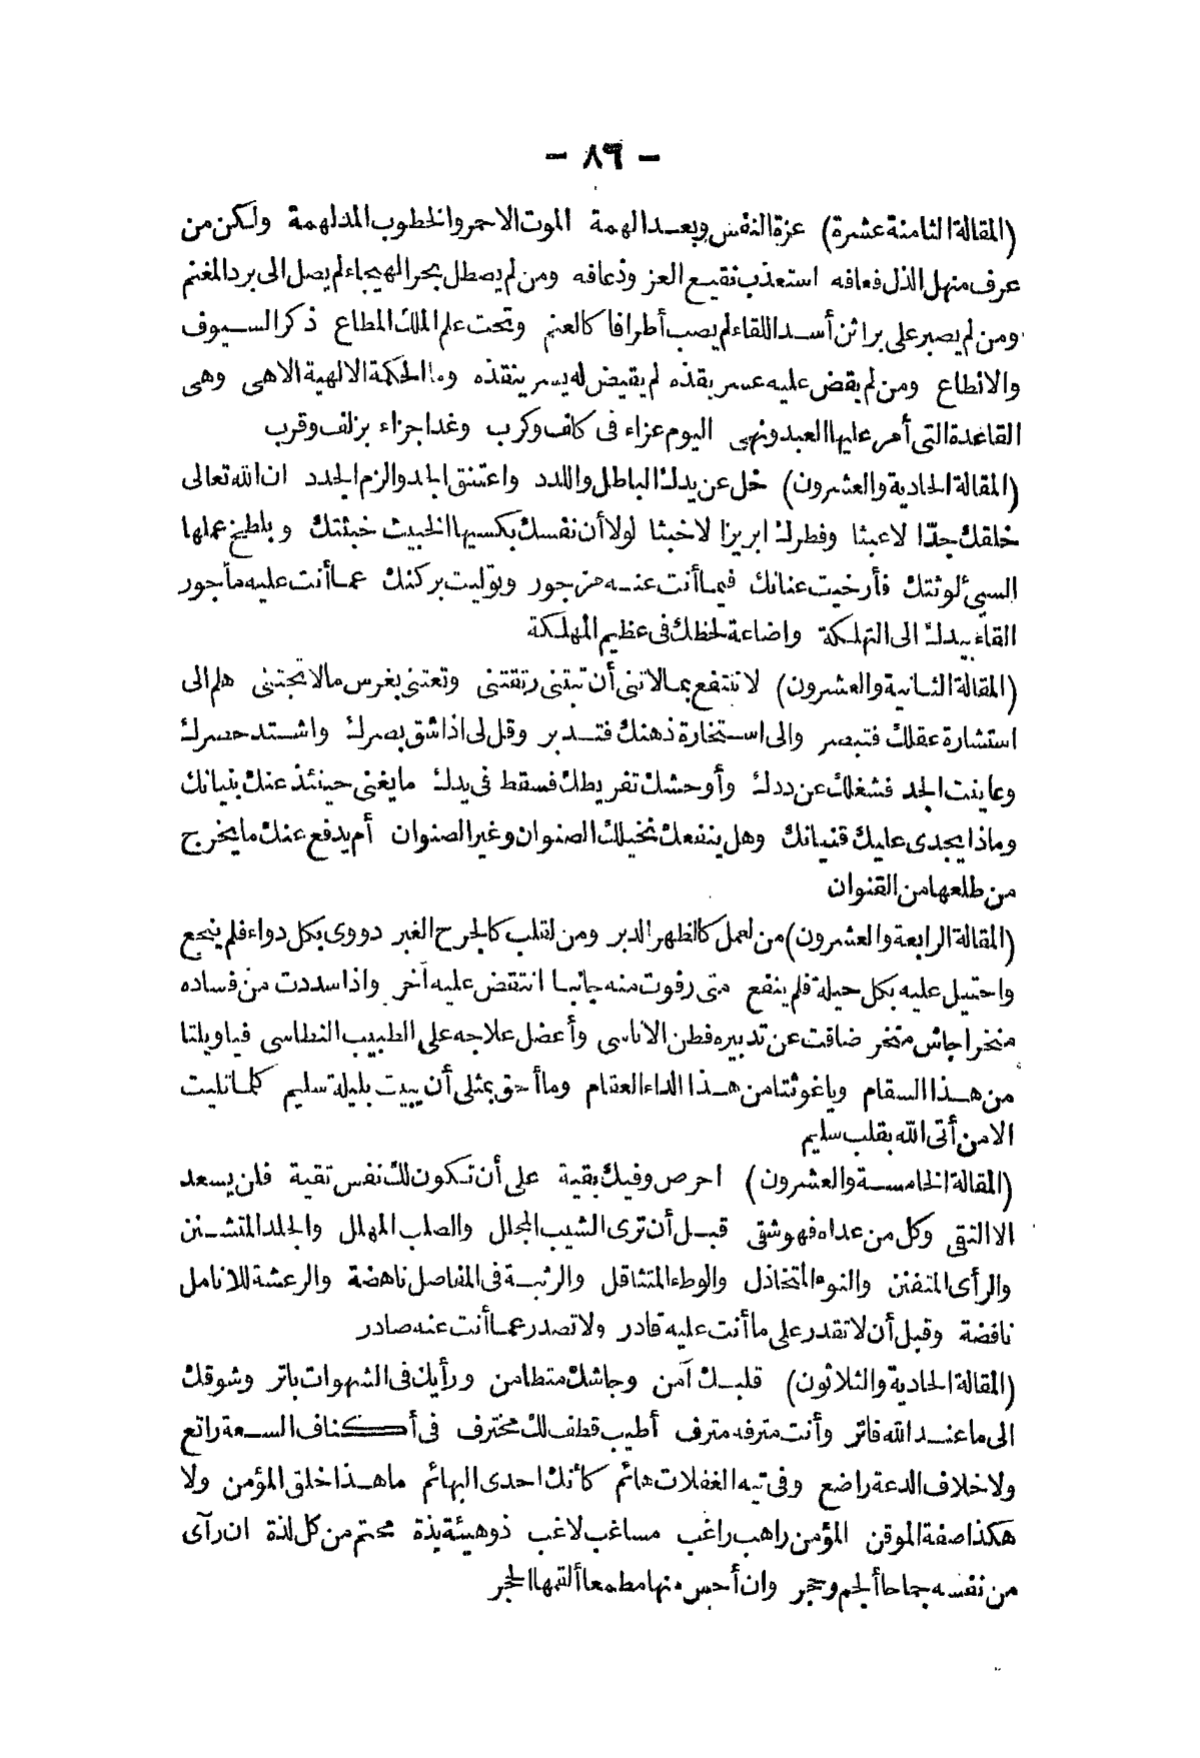 — ٨٩ —
(المقالة الثامنة عشرة) عزة النفس وبعد الهمة الموت الاحمر والخطوب المدلهمة ولكن من
عرف منهل الذل فعافه استعذب نقيع العز وذعافه ومن لم يصطل بحر الهيجاء لم يصل الى برد المغنم
ومن لم يصبر على براثن أسد اللقاء لم يصب أطرافا كالعنم وتحت علم الملك المطاع ذكر السيوف
والانطاع ومن لم يقض عليه عسر يقذه لم يقيض له يسر ينقذه وما الحكمة الالهية الا هى وهى
القاعدة التى أمر عليها العبد ونهى اليوم عزاء فى كلف وكرب وغدا جزاء بزلف وقرب
(المقالة الحادية والعشرون) خل عن يدك الباطل واللدد واعتنق الجد والزم الجدد ان الله تعالى
خلقك جدّا لا عبثا وفطرك ابريزا لا خبثا لولا أن نفسك بكسبها الخبيث خبثتك وبلطخ عملها
السيئ لوثتك فأرخيت عنانك فيما أنت عنه مزجور وتوليت بركنك عما أنت عليه مأجور
القاء بيدك الى التهلكة واضاعة لحظك فى عظيم المهلكة
(المقالة الثانية والعشرون) لا تنتفع بما لا تنى أن تبتنى رتقتنى وتعتنى بغرس مالا تجتنى هلم الى
استشارة عقلك فتبصر والى استخارة ذهنك فتدبر وقل لى اذا شق بصرك واشتد حصرك
وعاينت الجد فشغلك عن ددك وأوحشك تفريطك فسقط فى يدك ما يغنى حينئذ عنك بنيانك
وماذا يجدى عليك قنيانك وهل ينفعك نخيلك الصنوان وغير الصنوان أم يدفع عنك ما يخرج
من طلعها من القنوان
(المقالة الرابعة والعشرون) من لعمل كالظهر الدبر ومن لقلب كالجرح الغبر دووى بكل دواء فلم ينجع
واحتيل عليه بكل حيلة فلم ينفع متى رفوت منه جانبا انتقض عليه آخر واذا سددت من فساده
منخرا جاش منخر ضاقت عن تدبيره فطن الاناسى وأعضل علاجه على الطبيب النطاسى فياويلتا
من هذا السقام وياغوثتا من هذا الداء العقام وما أحق بمثلى أن يبيت بليلة سليم كلما تليت
الا من أتى الله بقلب سليم
(المقالة الخامسة والعشرون) احرص وفيك بقية على أن تكون لك نفس تقية فلن يسعد
الا التقى وكل من عداه فهو شقى قبل أن ترى الشيب المجلل والصلب المهلل والجلد المتشنن
والرأى المتفنن والنوء المتخاذل والوطء المتثاقل والرثية فى المفاصل ناهضة والرعشة للانامل
نافضة وقبل أن لا تقدر على ما أنت عليه قادر ولا تصدر عما أنت عنه صادر
(المقالة الحادية والثلاثون) قلبك آمن وجاشك متطامن ورأيك فى الشهوات باتر وشوقك
الى ما عند الله فاتر وأنت مترفه مترف أطيب قطف لك مخترف فى أكناف السعة راتع
ولاخلاف الدعة راضع وفى تيه الغفلات هائم كأنك احدى البهائم ما هذا خلق المؤمن ولا
هكذا صفة الموقن المؤمن راهب راغب مساغب لاغب ذو هيئة بذة محتم من كل لذة ان رآى
من نفسه جماحا ألجم وحجر وان أحس منها مطمعا ألقمها الحجر